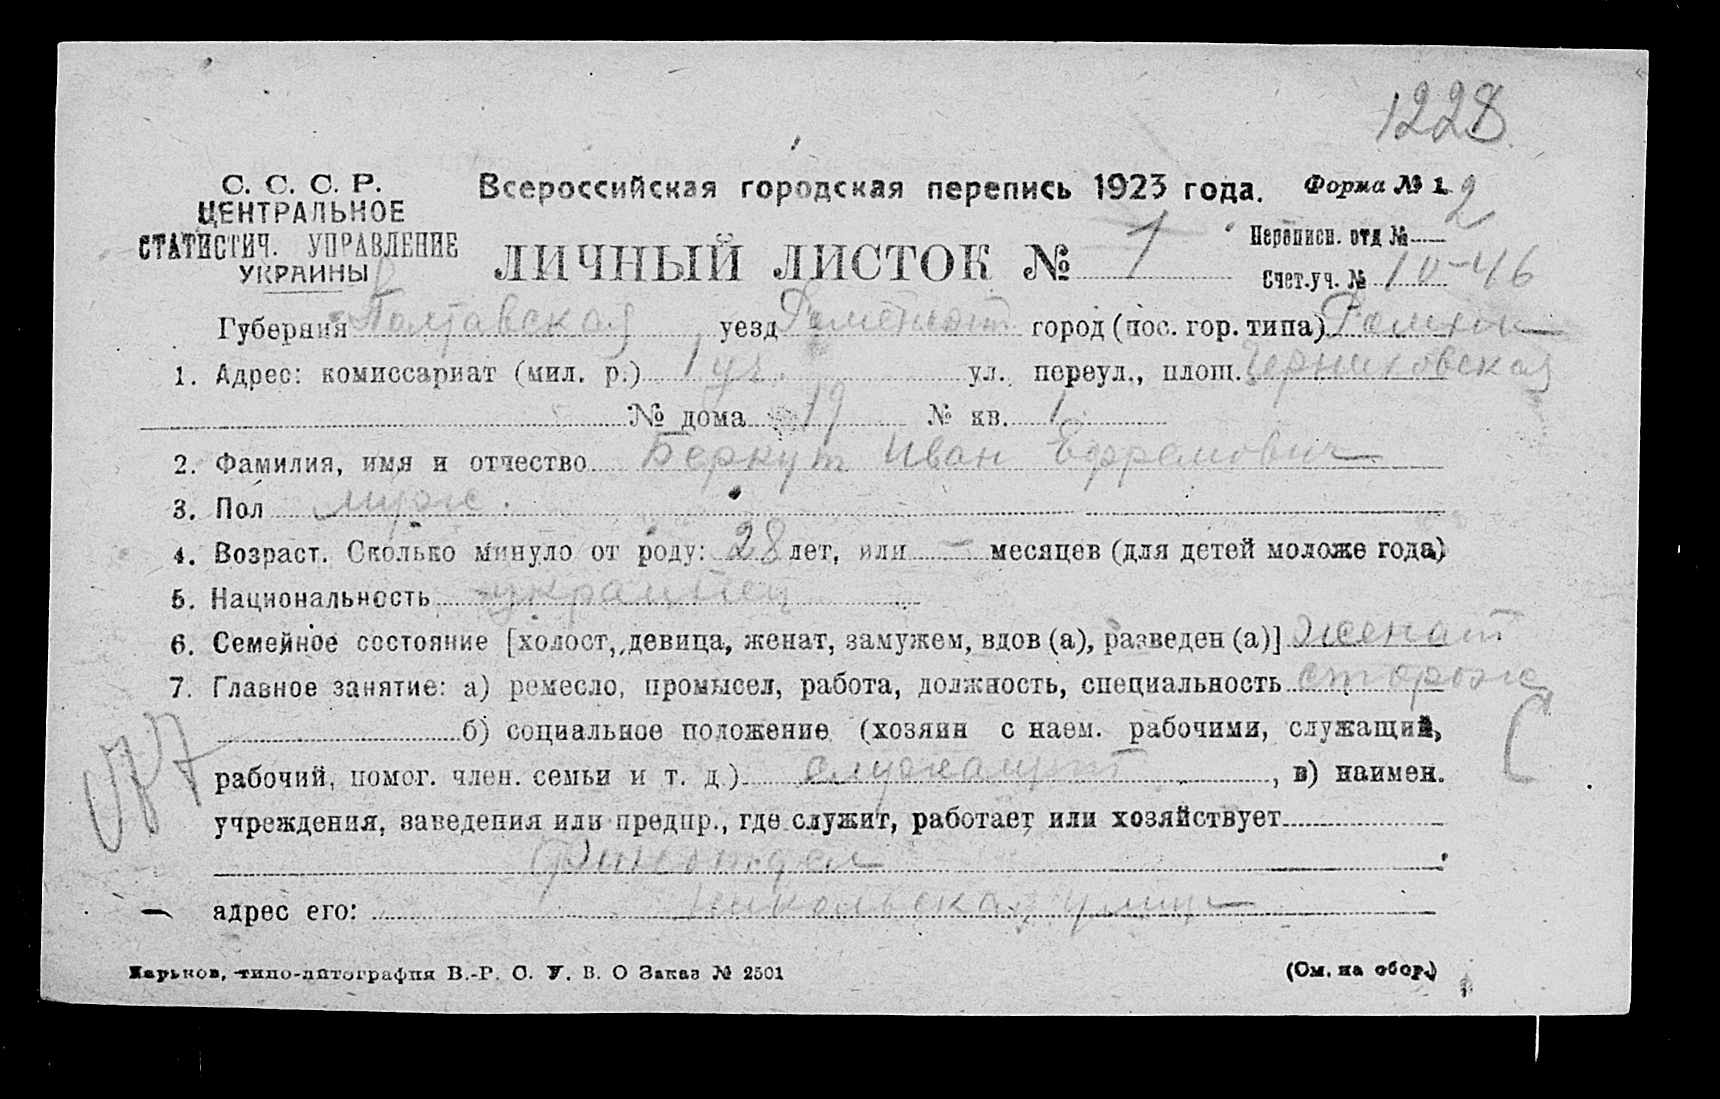 1228
С. С. С. Р.
ЦЕНТРАЛЬНОЕ
СТАТИСТИЧ. УПРАВЛЕНИЕ
УКРАИНЫ
Всероссийская городская перепись 1923 года.
Форма № 1.
ЛИЧНЫЙ ЛИСТОК № 1
Переписн. отд № 2
Счет.уч. № 10-46
Губерния Полтавская уезд Роменский город (пос. гор. типа) Ромны
1. Адрес: комиссариат (мил. р.) 1 уч. ул., переул., площ.
№ дома 19 № кв. 1
2. Фамилия, имя и отчество Беркут Иван Ефремович
3. Пол муж.
4. Возраст. Сколько минуло от роду: 28 лет, или — месяцев (для детей моложе года)
5. Национальность украинец
6. Семейное состояние [холост, девица, женат, замужем, вдов (а), разведен (а)] женат
7. Главное занятие: а) ремесло, промысел, работа, должность, специальность сторож
б) социальное положение (хозяин с наем. рабочими, служащий,
рабочий, помог. член. семьи и т. д.) служащий, в) наимен.
учреждения, заведения или предпр., где служит, работает или хозяйствует
Финотдел
адрес его: улица
Харьков, типо-литография В.-Р. С. У. В. О Заказ № 2501
(См. на обор.)